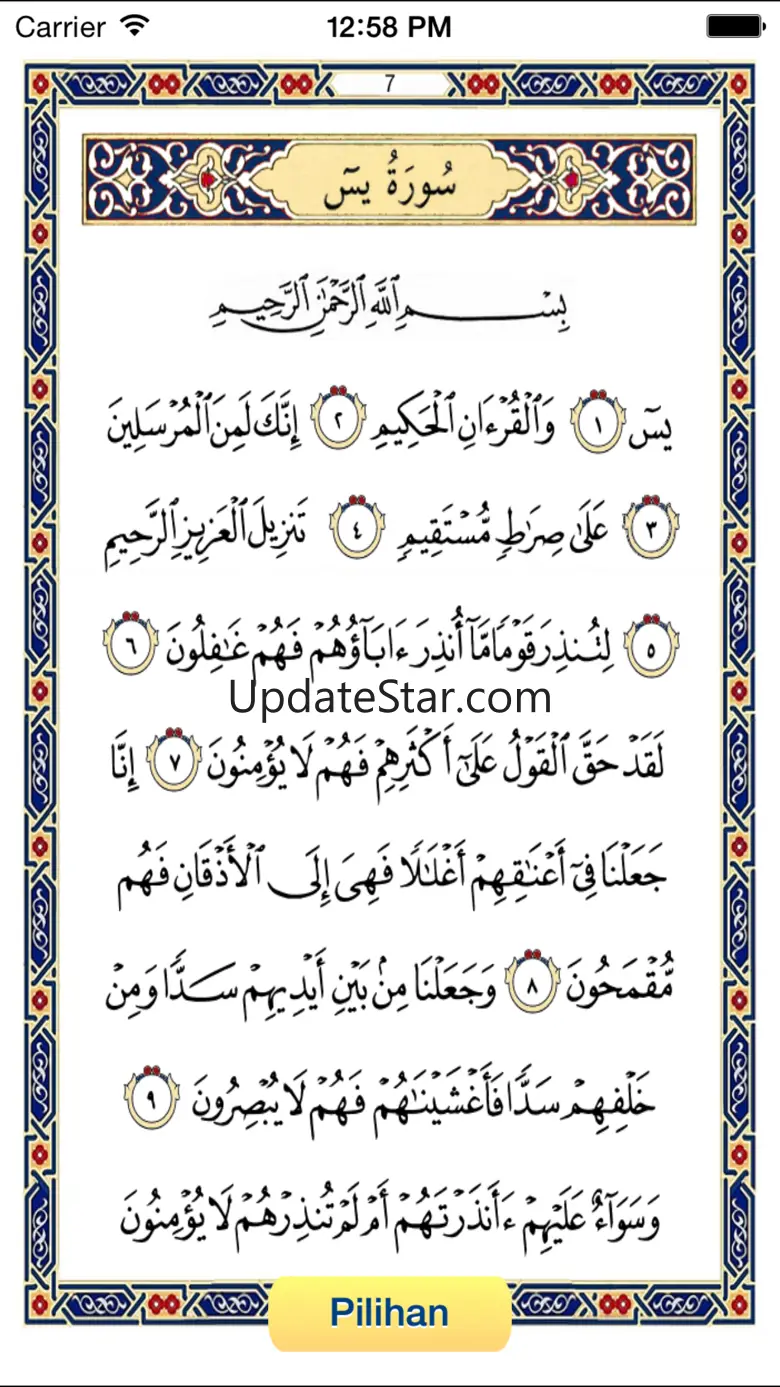 Carrier 12:58 PM
7
سُورَةُ يسٓ
بِسْمِ ٱللَّهِ ٱلرَّحْمَٰنِ ٱلرَّحِيمِ
يسٓ ١ وَٱلْقُرْءَانِ ٱلْحَكِيمِ ٢ إِنَّكَ لَمِنَ ٱلْمُرْسَلِينَ
٣ عَلَىٰ صِرَٰطٍ مُّسْتَقِيمٍ ٤ تَنزِيلَ ٱلْعَزِيزِ ٱلرَّحِيمِ
٥ لِتُنذِرَ قَوْمًا مَّآ أُنذِرَ ءَابَآؤُهُمْ فَهُمْ غَٰفِلُونَ ٦
UpdateStar.com
لَقَدْ حَقَّ ٱلْقَوْلُ عَلَىٰٓ أَكْثَرِهِمْ فَهُمْ لَا يُؤْمِنُونَ ٧ إِنَّا
جَعَلْنَا فِىٓ أَعْنَٰقِهِمْ أَغْلَٰلًا فَهِىَ إِلَى ٱلْأَذْقَانِ فَهُم
مُّقْمَحُونَ ٨ وَجَعَلْنَا مِنۢ بَيْنِ أَيْدِيهِمْ سَدًّا وَمِنْ
خَلْفِهِمْ سَدًّا فَأَغْشَيْنَٰهُمْ فَهُمْ لَا يُبْصِرُونَ ٩
وَسَوَآءٌ عَلَيْهِمْ ءَأَنذَرْتَهُمْ أَمْ لَمْ تُنذِرْهُمْ لَا يُؤْمِنُونَ
Pilihan